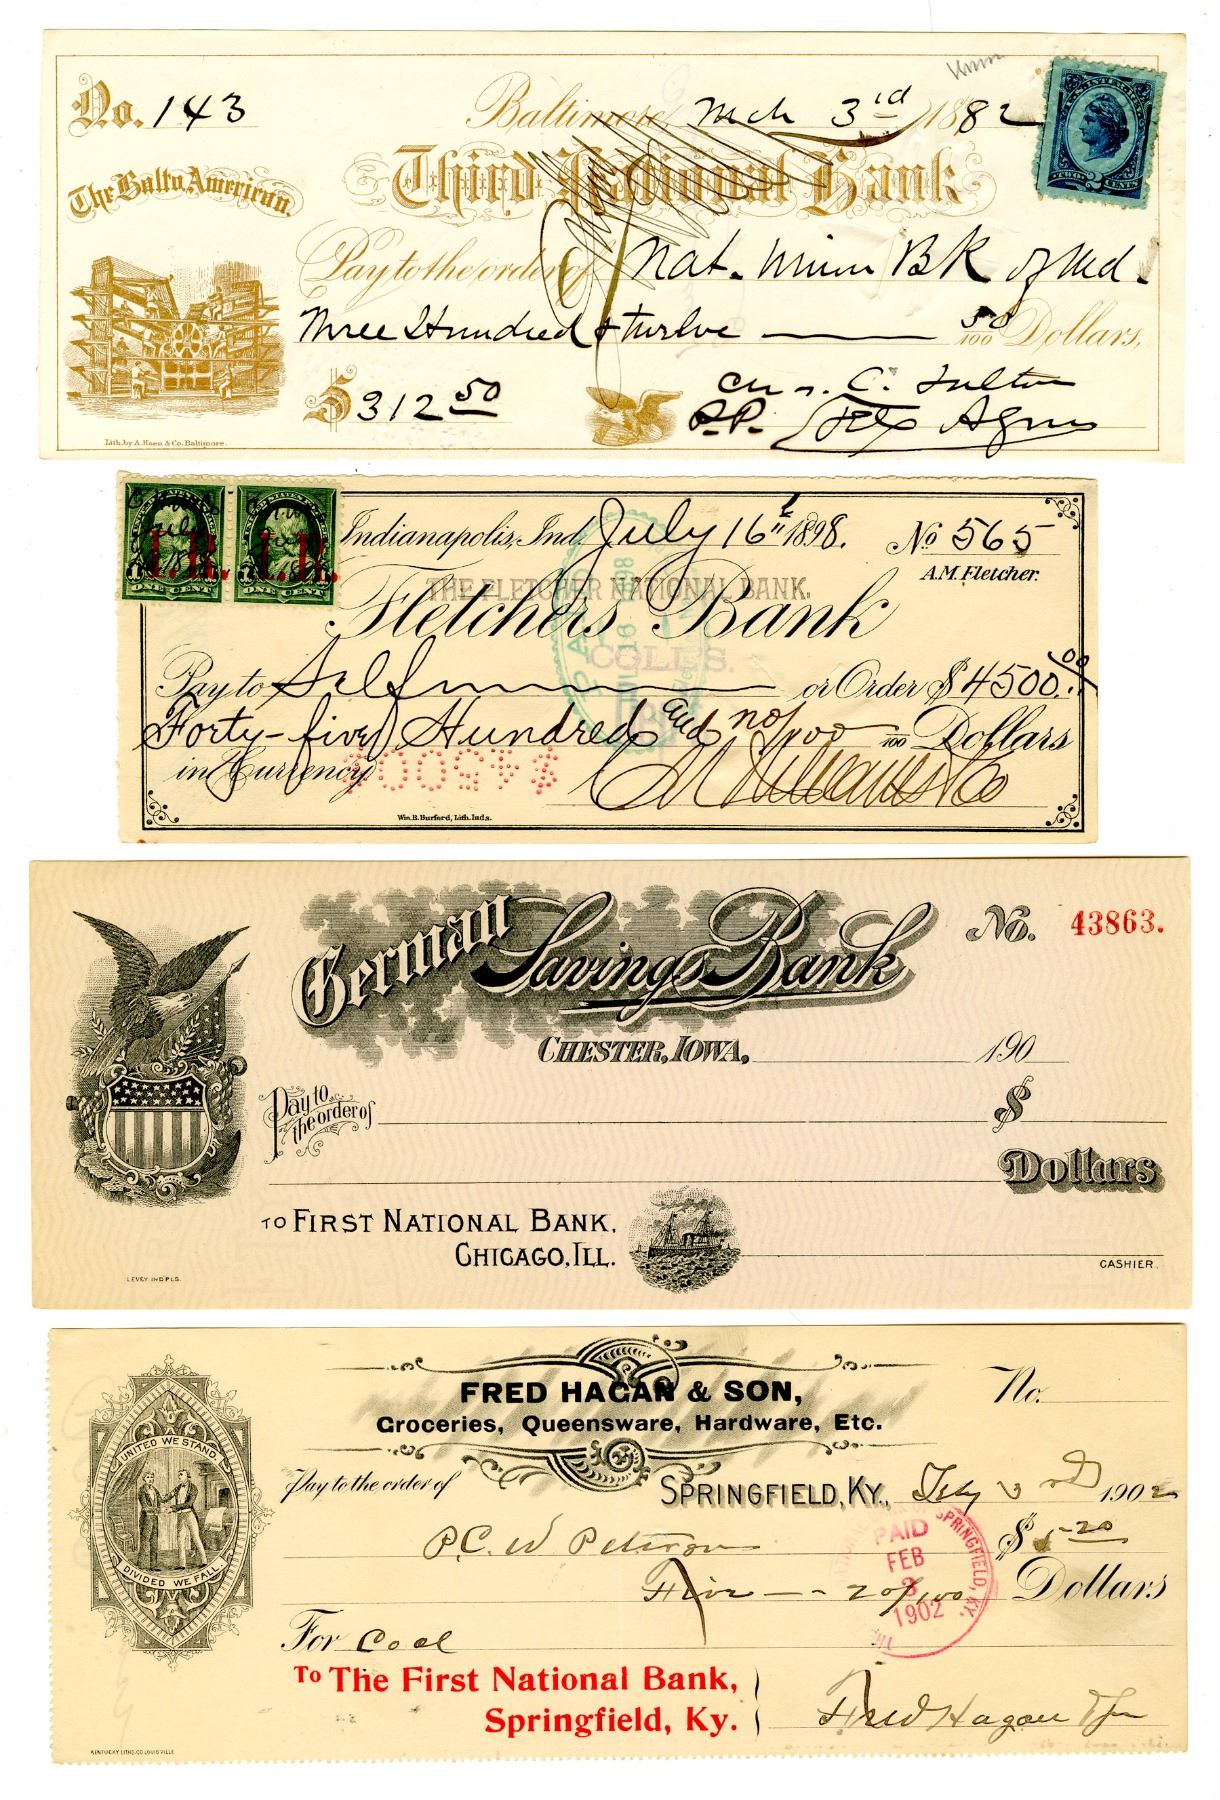 No. 143
Baltimore, Mch 3rd 1882
Union
TWO 2 CENTS
The Balto. American.
Third National Bank
Pay to the order of Nat. Union Bk of Md.
Three Hundred & twelve 50/100 Dollars,
$312 50
Chas. C. Fulton
P.P. Felix Agnus
Lith. by A. Hoen & Co. Baltimore.
I.R. I.R.
1 ONE CENT 1 1 ONE CENT 1
Indianapolis, Ind. July 16" 1898. No 565
A.M. Fletcher.
THE FLETCHER NATIONAL BANK.
Fletchers Bank
PAID
COLL'S.
Pay to Self or Order $4500.00
Forty-five Hundred and no/100 100 Dollars
in Currency
$4500$
Wm. B. Burford, Lith. Inds.
German Savings Bank
No. 43863.
CHESTER, IOWA, 190
Pay to the order of $
Dollars
TO FIRST NATIONAL BANK,
CHICAGO, ILL.
CASHIER.
LEVEY IND'PLS.
FRED HAGAN & SON,
Groceries, Queensware, Hardware, Etc.
No.
UNITED WE STAND.
DIVIDED WE FALL.
Pay to the order of
SPRINGFIELD, KY., Feby 3rd 1902
P.C. W Peterson $5 20
Five — 20/100 Dollars
SPRINGFIELD, KY.
PAID
FEB
3
1902
For Coal
To The First National Bank,
Springfield, Ky.
Fred Hagan & Son
KENTUCKY LITHO. CO. LOUISVILLE